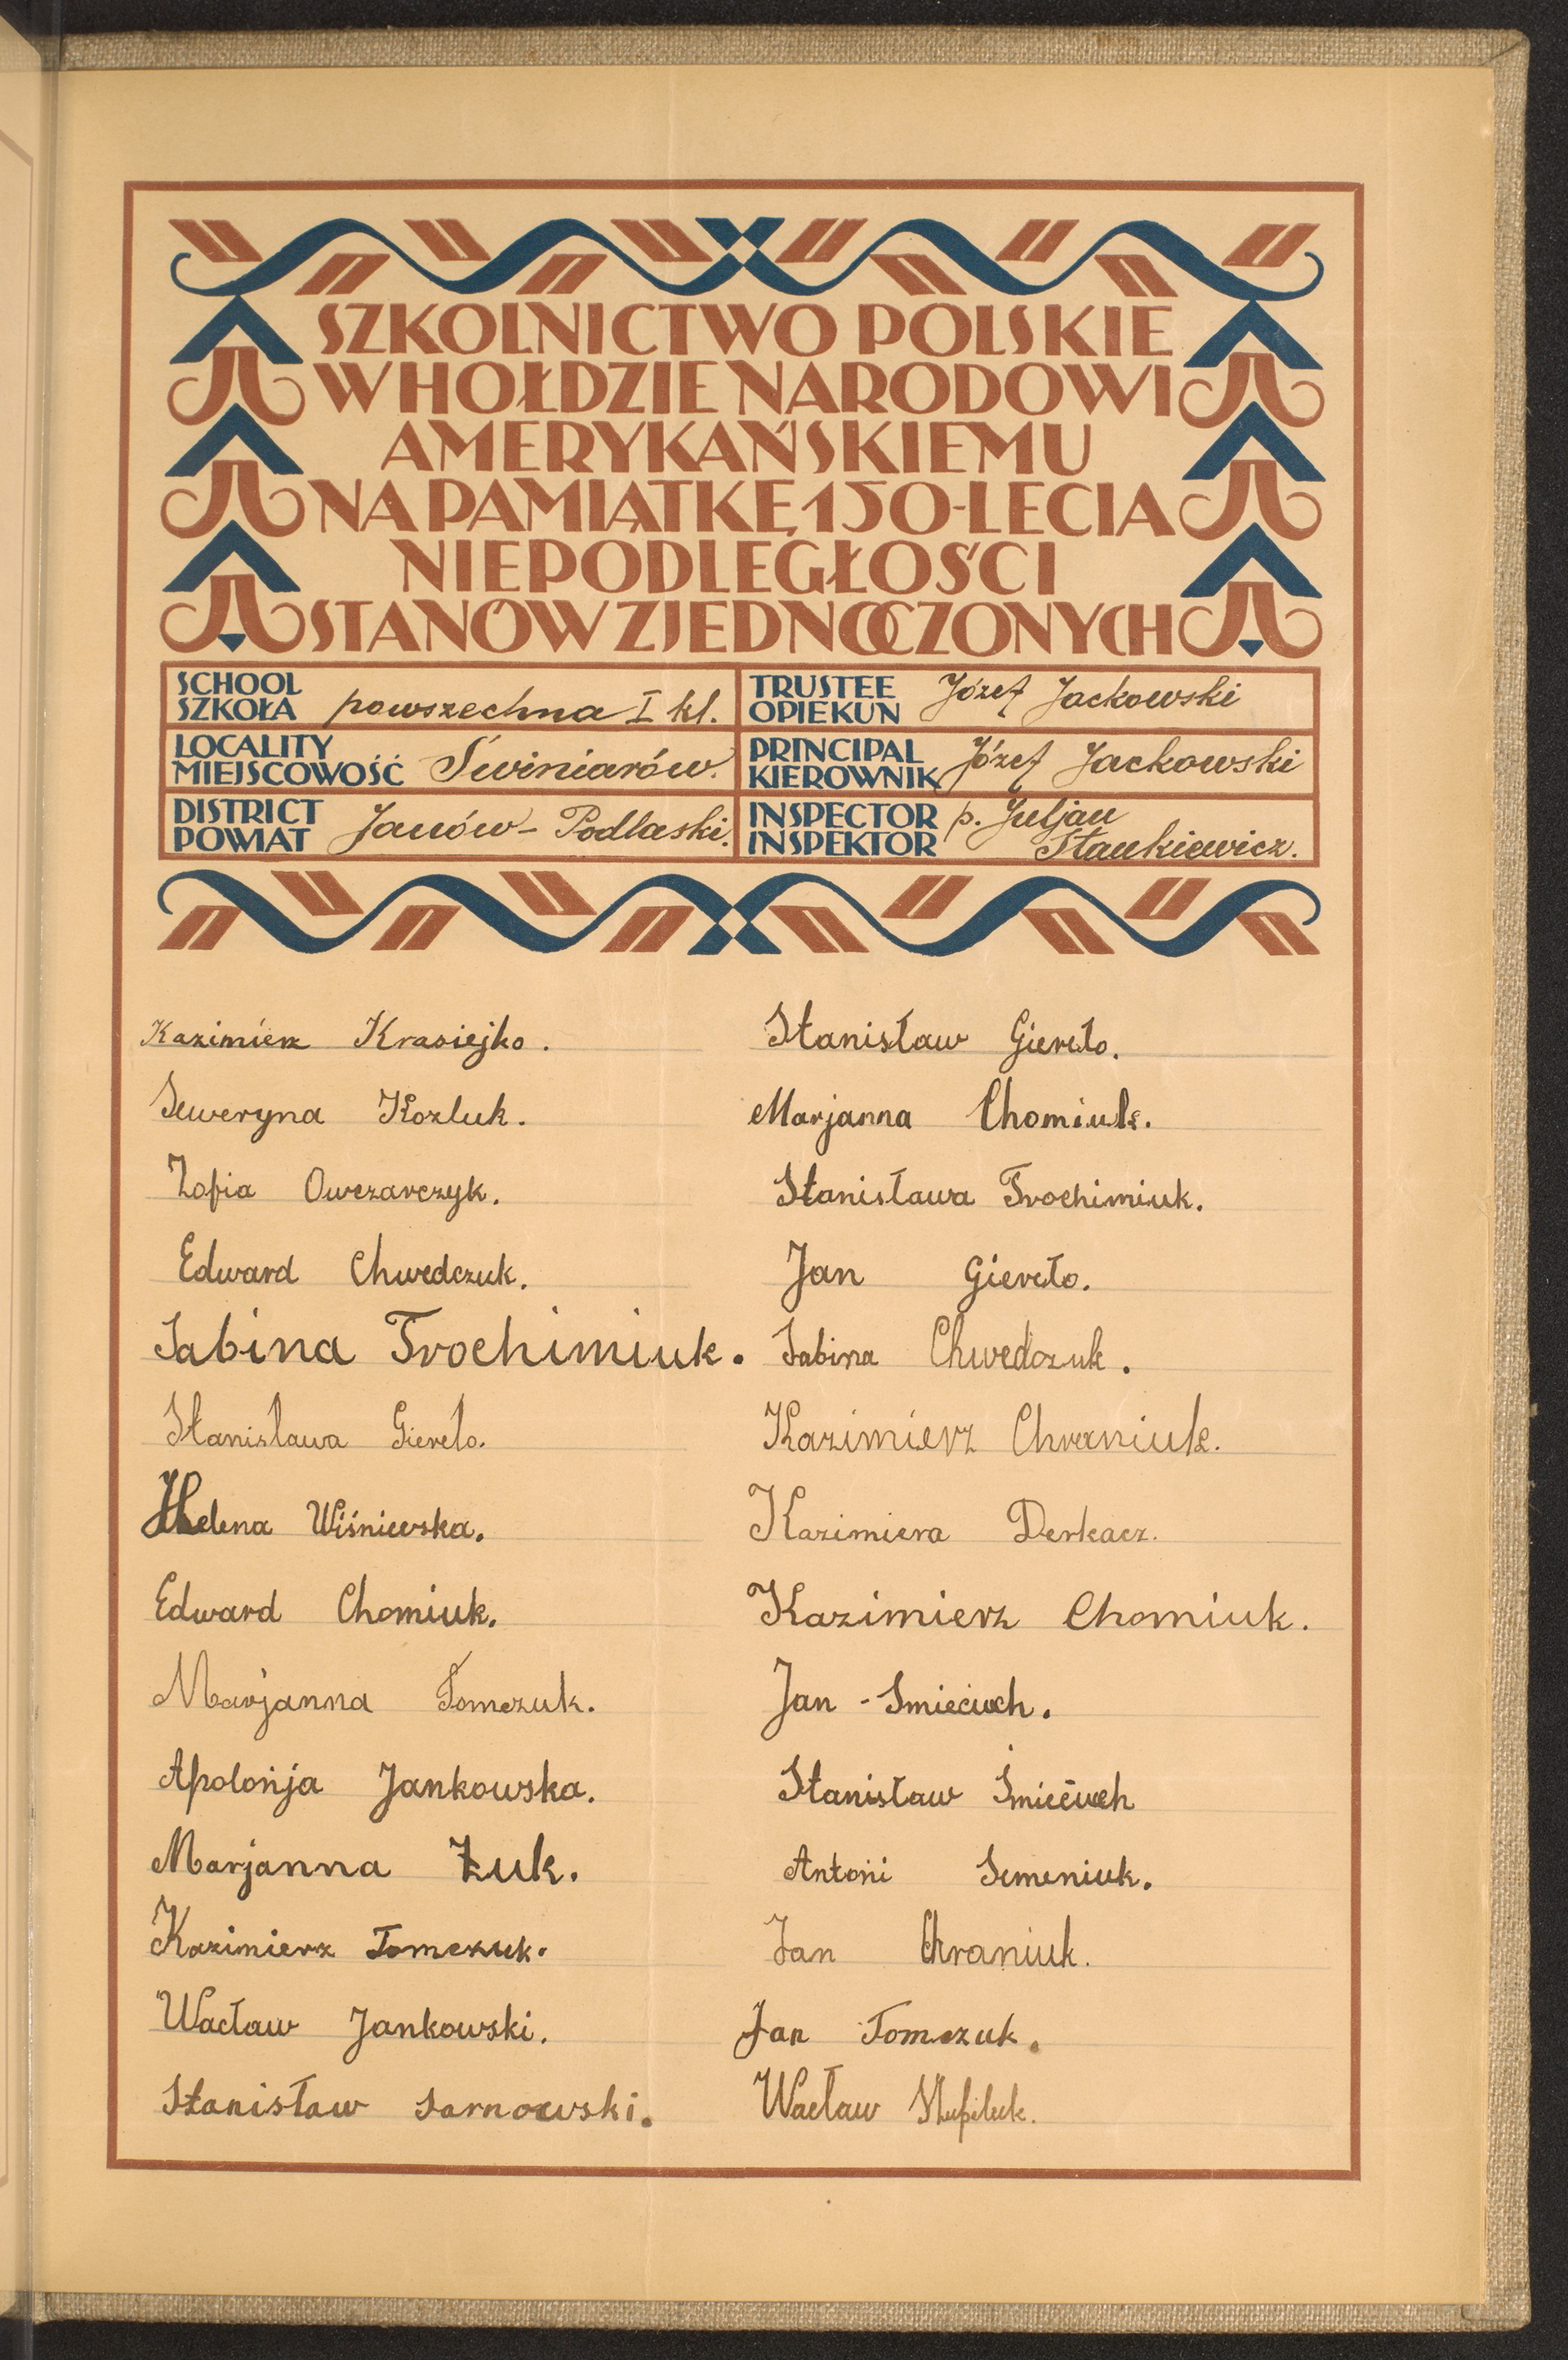 SZKOLNICTWO POLSKIE
W HOŁDZIE NARODOWI
AMERYKAŃSKIEMU
NA PAMIĄTKĘ 150-LECIA
NIEPODLEGŁOŚCI
STANÓW ZJEDNOCZONYCH
SCHOOL
SZKOŁA powszechna I kl.
TRUSTEE
OPIEKUN Józef Jackowski
LOCALITY
MIEJSCOWOŚĆ Świniarów.
PRINCIPAL
KIEROWNIK Józef Jackowski
DISTRICT
POWIAT Janów-Podlaski.
INSPECTOR
INSPEKTOR p. Juljan
Stankiewicz.
Kazimierz Krasiejko.
Seweryna Kozluk.
Zofia Owczarczyk.
Edward Chwedczuk.
Sabina Trochimiuk.
Stanislawa Giereło.
Helena Wiśniewska.
Edward Chomiuk.
Marjanna Tomczuk.
Apolońja Jankowska.
Marjanna Żuk.
Kazimierz Tomczuk.
Wacław Jankowski.
Stanisław Sarnowski.
Stanisław Giereło.
Marjanna Chomiuk.
Stanisława Trochimiuk.
Jan Giereło.
Sabina Chwedczuk.
Kazimierz Chraniuk.
Kazimiera Derkacz.
Kazimierz Chomiuk.
Jan - Smieciuch.
Stanisław Śmieciuch
Antońi Semeniuk.
Jan Chraniuk.
Jan Tomczuk.
Wacław